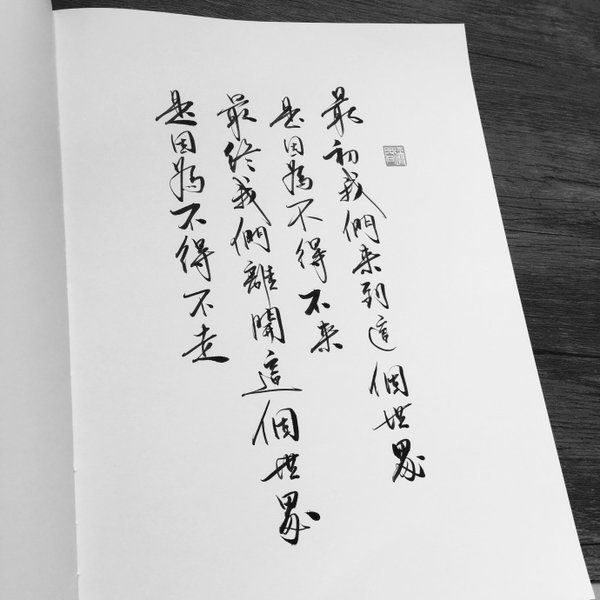 最初我們来到這個世界
是因為不得不来
最终我們離開這個世界
是因為不得不走